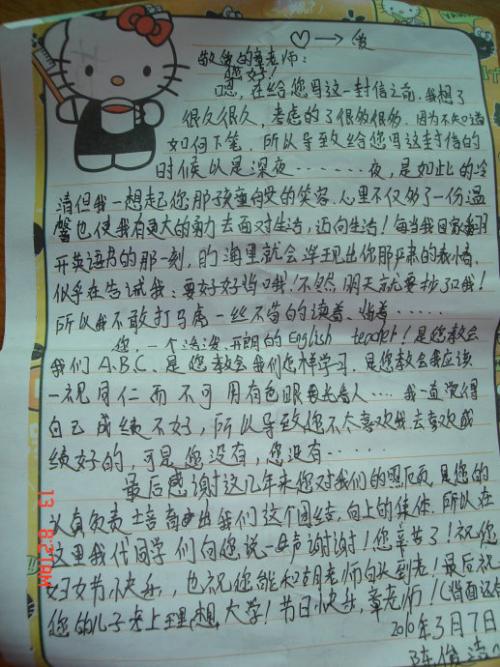 ♡→ 爱
敬爱的章老师:
您好!
嗯,在给您写这一封信之前,我想了
很久很久,考虑的了很多很多.因为不知道
如何下笔.所以导致给您写这封信的
时候以是深夜……夜,是如此的冷
清但我一想起您那孩童的笑容.心里不仅多了一份温
馨也使我有更大的勇力去面对生活,迈向生活!每当我回家翻
开英语书的那一刻,的海里就会浮现出你那严肃的表情.
似乎在告诫我:要好好学习哦!不然,明天就要抄了哦!
所以我不敢打马虎一丝不苟的读着、背着……
您,一个活泼、开朗的English teacher!是您教会
我们A.B.C.是您教会我们怎样学习.是您教会我应该
一视同仁而不可用有色眼看人….我一直觉得
自己成绩不好,所以导致您不太喜欢我.去喜欢成
绩好的,可是您没有,您没有……
最后感谢这几年来您对我们的照顾,是您的
认真负责培育出我们这个团结,向上的集体.所以在
这里我代同学们向您说一声谢谢!您辛苦了!祝您
妇女节快乐,也祝您能和老师白头到老!最后祝
您的儿子考上理想大学!节日快乐,章老师!(背面还有
2010年3月7日
陈
13 8:28PM